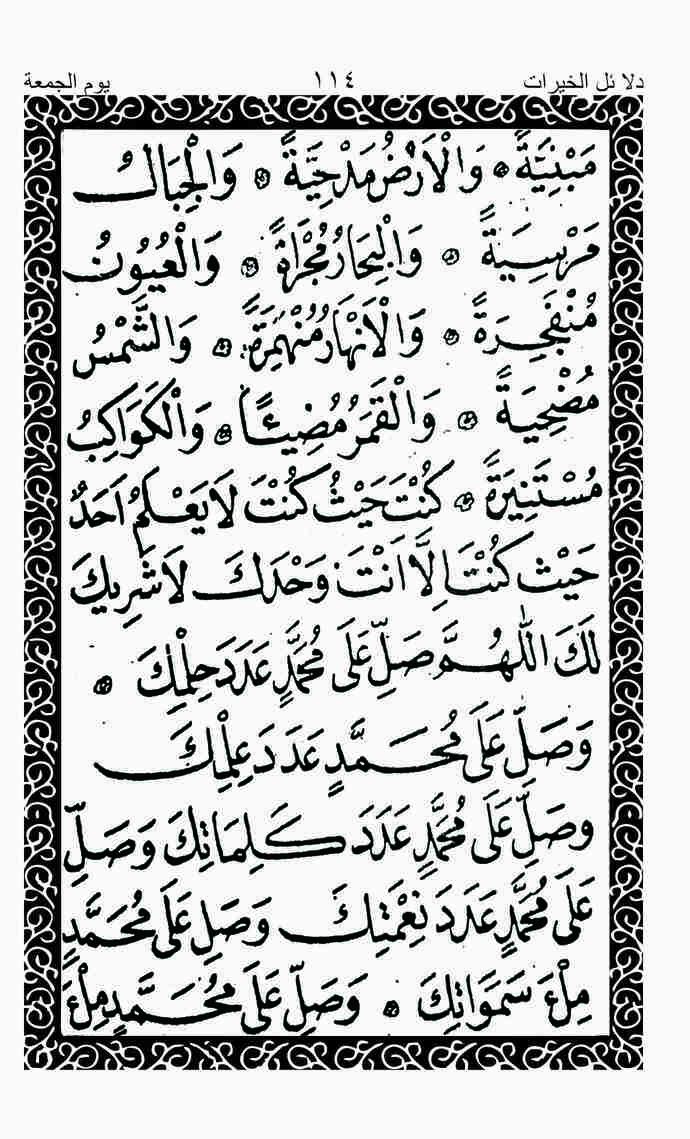 دلائل الخيرات ١١٤ يوم الجمعة
مَبْنِيَّةً ۞ وَالْاَرْضُ مَدْحِيَّةً ۞ وَالْجِبَالُ
مَرْسِيَةً ۞ وَالْبِحَارُ مُجْرَاةً ۞ وَالْعُيُونُ
مُنْفَجِرَةً ۞ وَالْاَنْهَارُ مُنْهَمِرَةً ۞ وَالشَّمْسُ
مُضْحِيَةً ۞ وَالْقَمَرُ مُضِيئًا ۞ وَالْكَوَاكِبُ
مُسْتَنِيرَةً ۞ كُنْتَ حَيْثُ كُنْتَ لَا يَعْلَمُ اَحَدٌ
حَيْثُ كُنْتَ اِلَّا اَنْتَ وَحْدَكَ لَا شَرِيكَ
لَكَ اللّٰهُمَّ صَلِّ عَلَى مُحَمَّدٍ عَدَدَ حِلْمِكَ ۞
وَصَلِّ عَلَى مُحَمَّدٍ عَدَدَ عِلْمِكَ
وصَلِّ عَلَى مُحَمَّدٍ عَدَدَ كَلِمَاتِكَ وَصَلِّ
عَلَى مُحَمَّدٍ عَدَدَ نِعْمَتِكَ وَصَلِ عَلَى مُحَمَّدٍ
مِلْءَ سَمَوَاتِكَ ۞ وَصَلِّ عَلَى مُحَمَّدٍ مِلْءَ